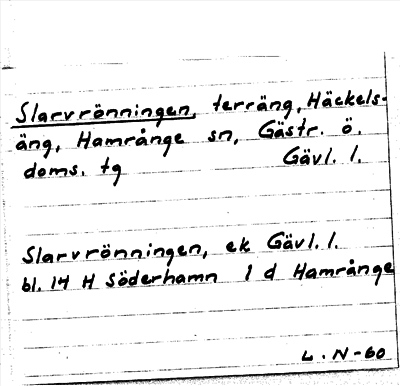 Slarvrönningen, terräng, Häckels-
äng, Hamrånge sn, Gästr. ö.
doms. tg Gävl. l.
Slarvrönningen, ek Gävl. l.
bl. 14 H Söderhamn 1 d Hamrånge
L. N-60